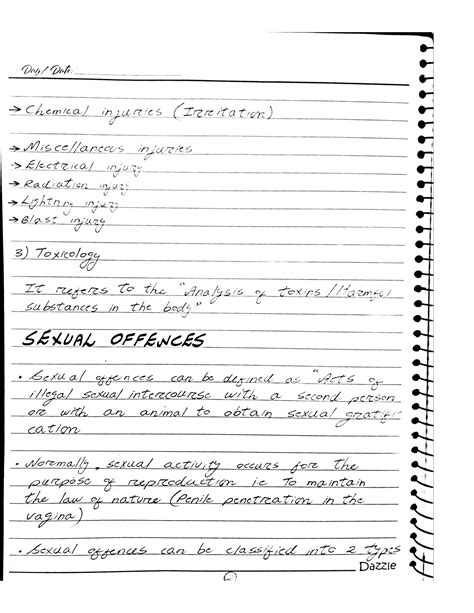 Day / Date:
→ Chemical injuries (Irritation)
→ Miscellaneous injuries
→ Electrical injury
→ Radiation injury
→ Lightning injury
→ Blast injury
3) Toxicology
It referes to the "Analysis of toxins / Harmful
substances in the body"
SEXUAL OFFENCES
• Sexual offences can be defined as "Acts of
illegal sexual intercourse with a second person
or with an animal to obtain sexual gratifi
cation
• Normally, sexual activity occurs for the
purpose of reproduction ie To maintain
the law of nature (Penile penetration in the
vagina)
• Sexual offences can be classified into 2 types
Dazzle